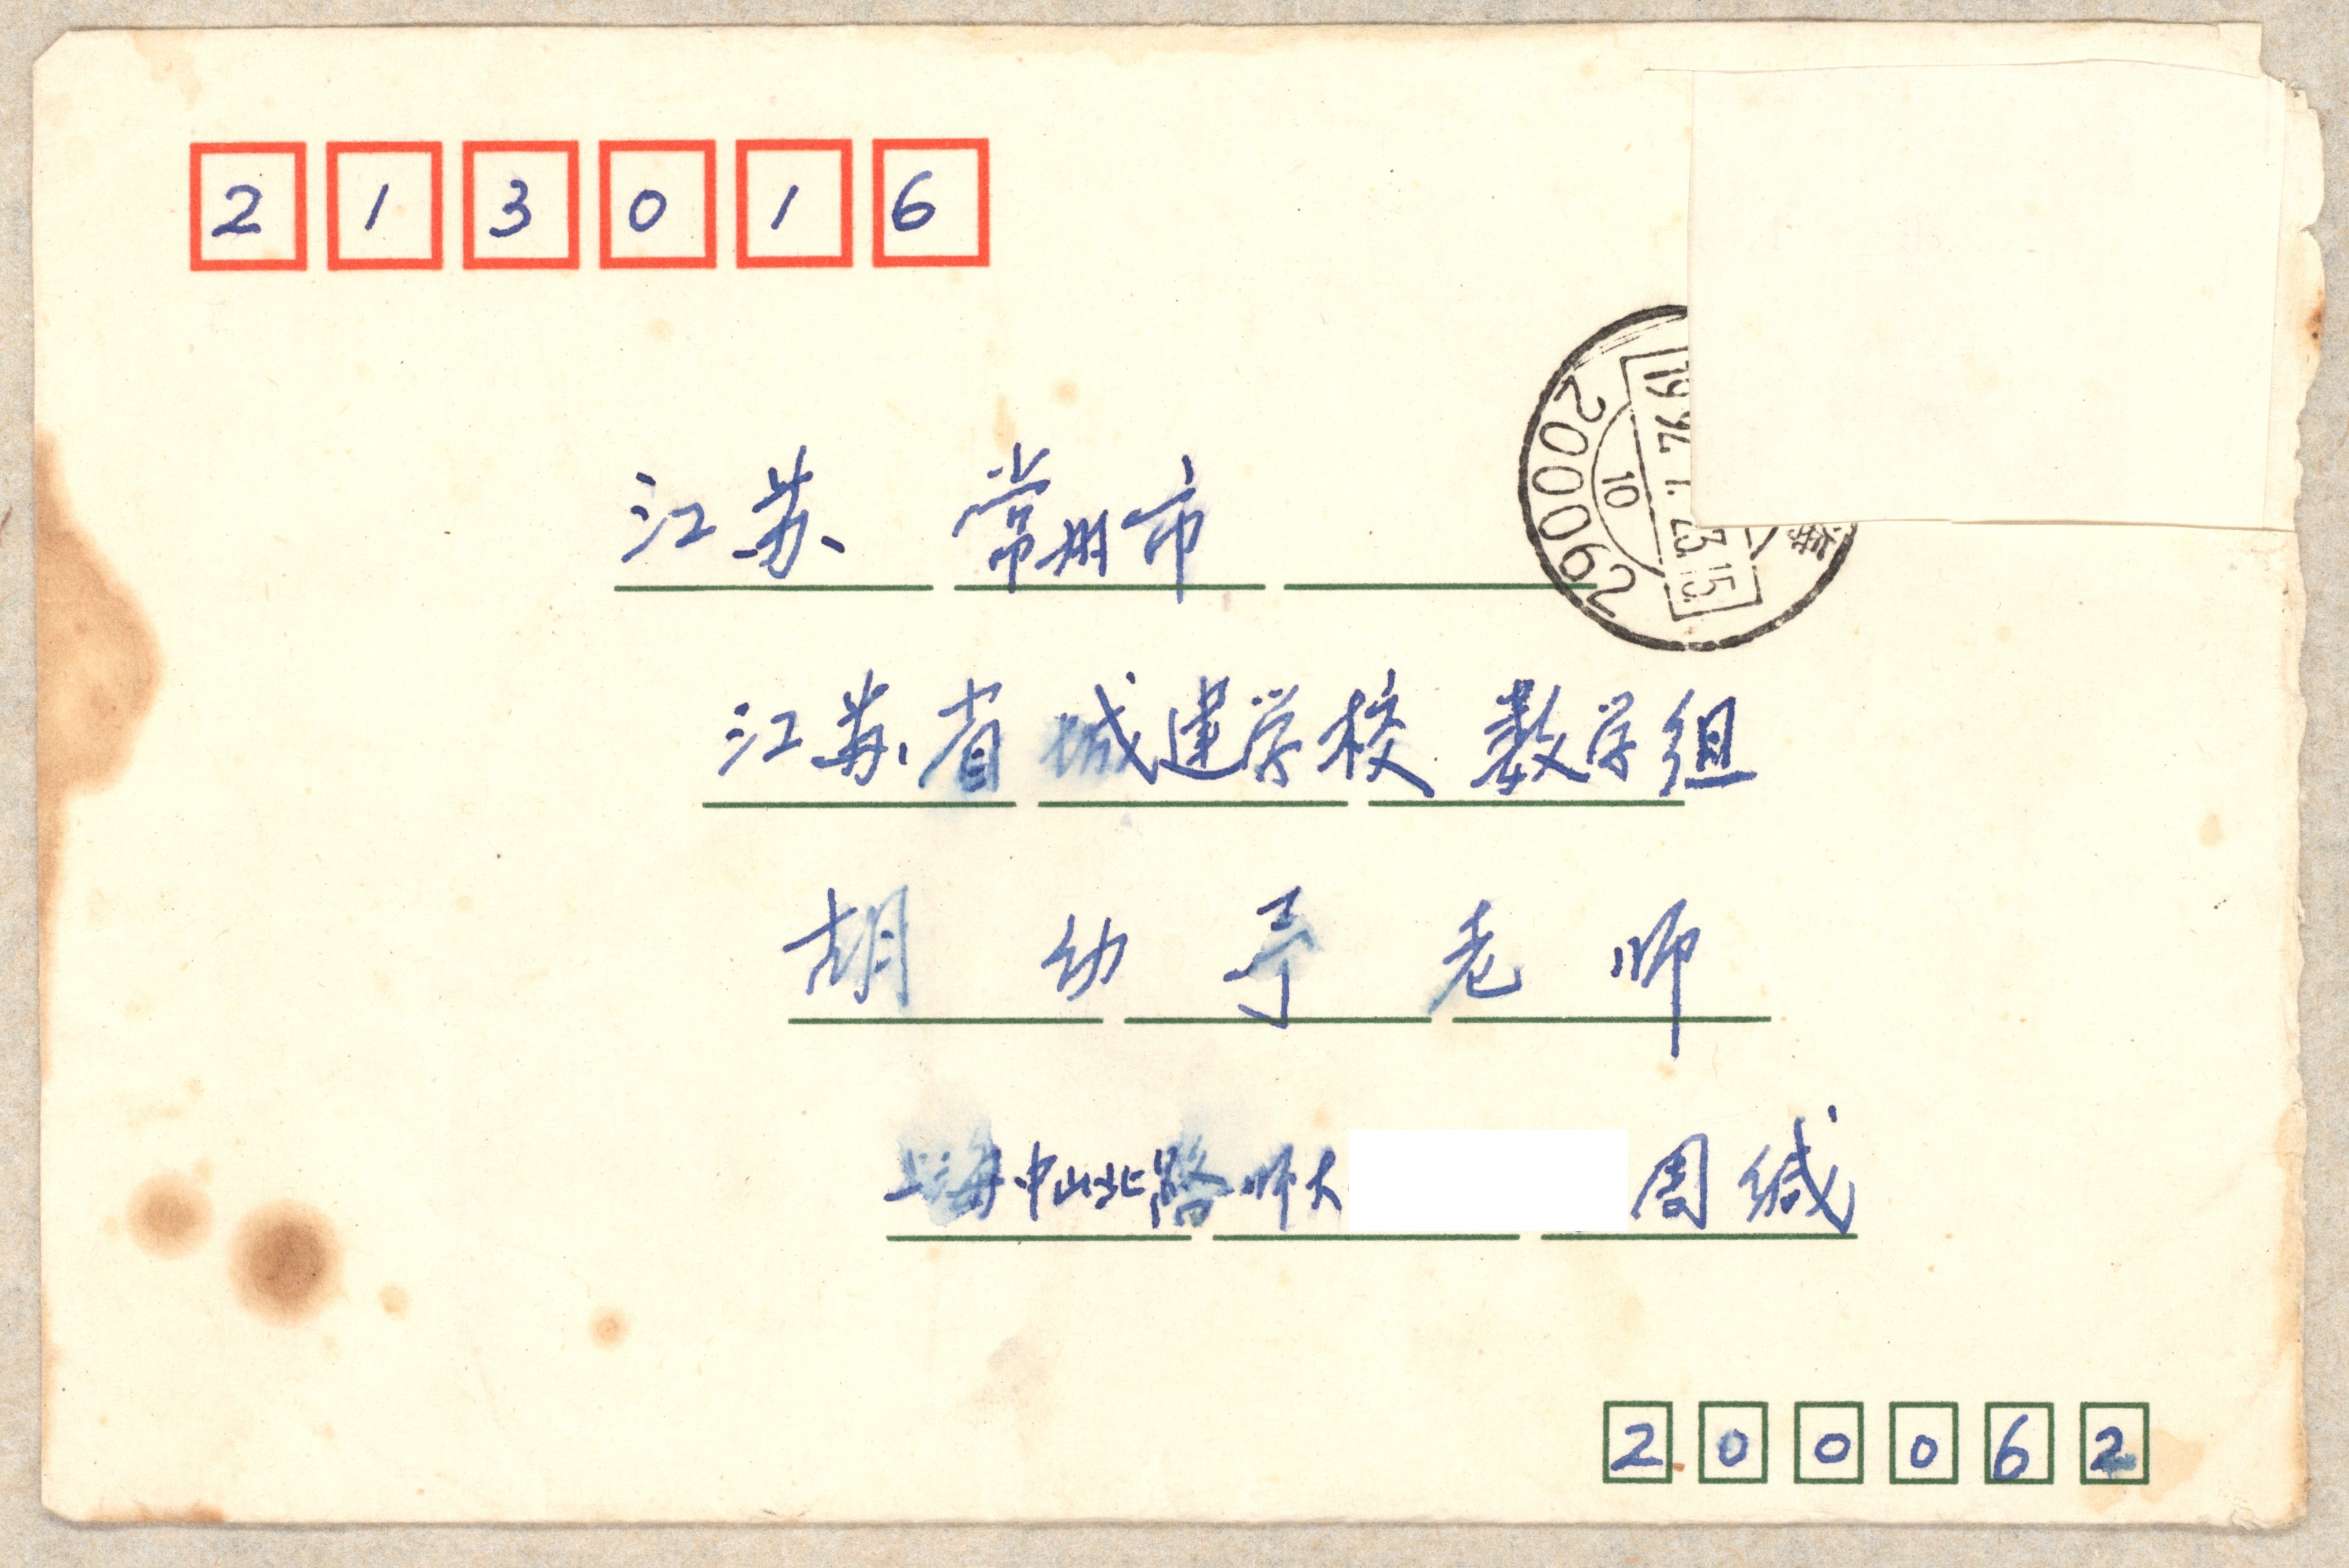 213016
江苏 常州市
200062
10
1992.7.23.15
海
江苏省城建学校 数学组
胡幼予老师
上海中山北路师大 周缄
200062